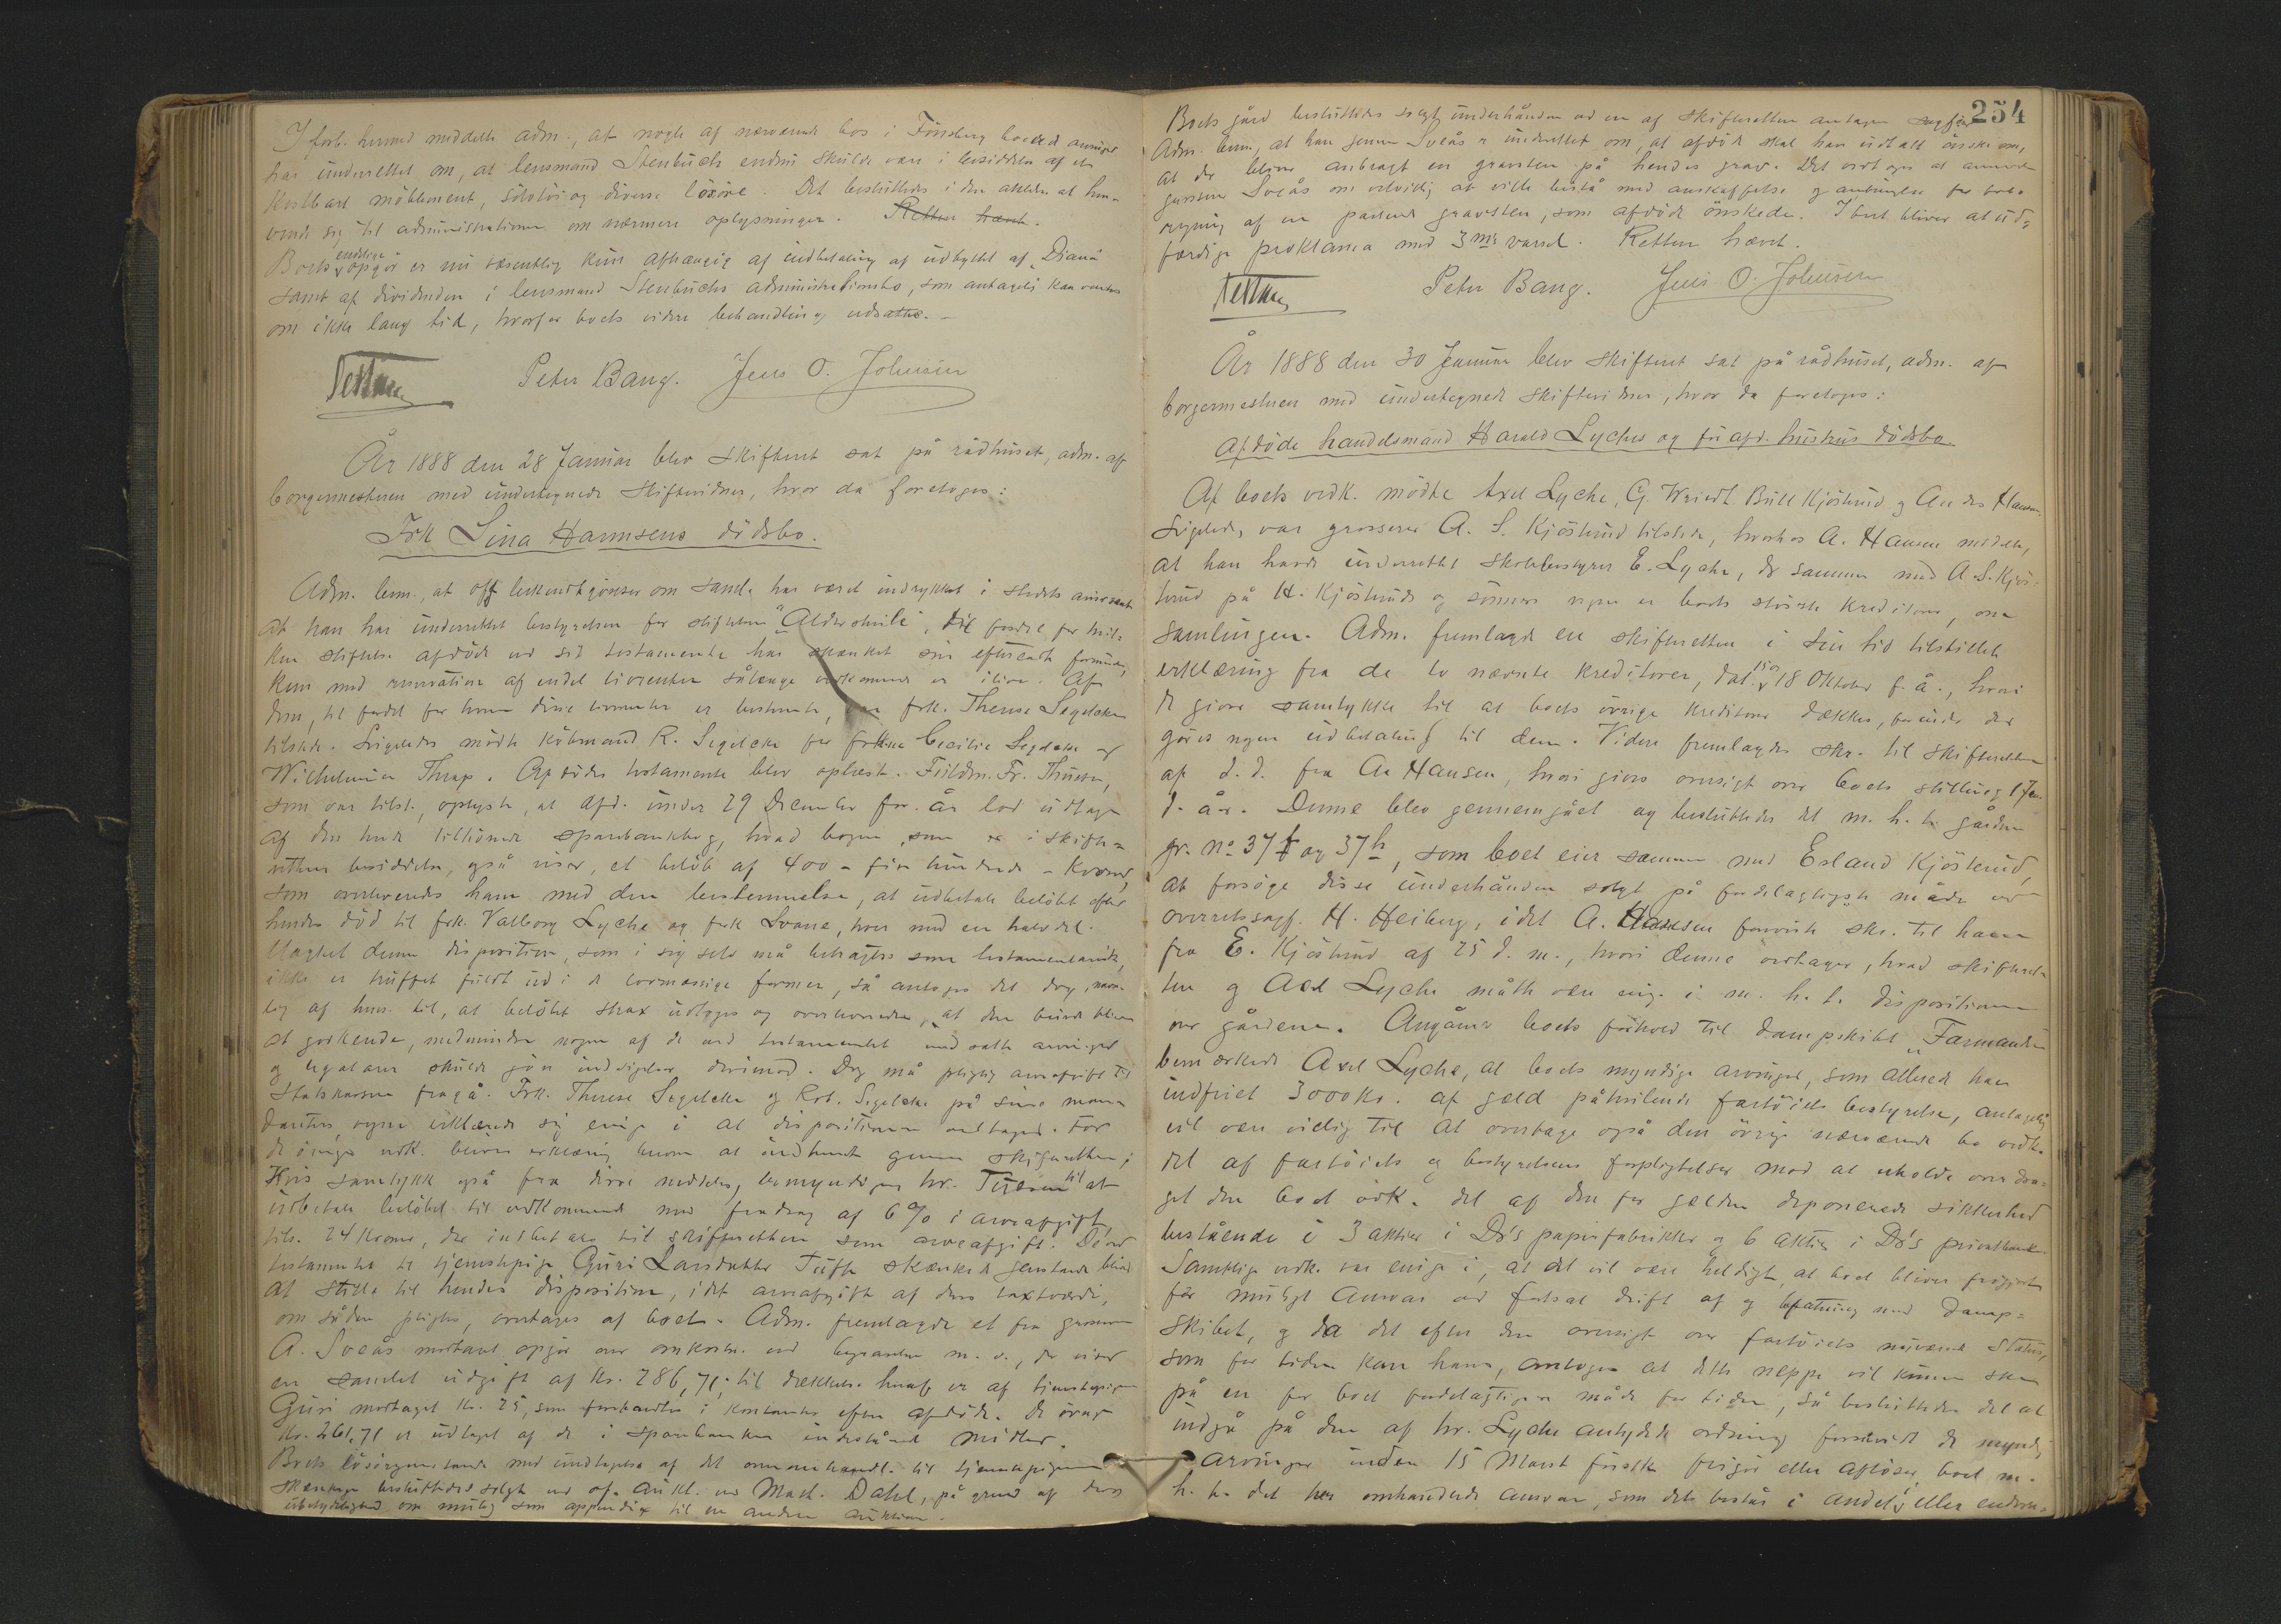 I forb. hermed meddelte adm., at nogle af nærværende bos i Tønsberg boende arvinger
har underrettet om, at lensmand Stenbuch endnu skulde være i besiddelse af et
kostbart möblement, sölvtöi og diverse lösöre. Det besluttedes i den anledn. at hen-
vende sig til administrationen om nærmere oplysninger. Retten hævet.
Boets endelige opgör er nu væsentlig kun afhængig af indbetaling af udbyttet af "Diana"
samt af dividenden i lensmand Stenbuchs administrationsbo, som antagelig kan ventes
om ikke lang tid, hvorfor boets videre behandling udsattes. -
Peter Bang. Jens O. Johnsen
År 1888 den 28 Januar blev skifteret sat på rådhuset, adm. af
borgermesteren med undertegnede skiftevidner, hvor da foretoges:
Frk Lina Harmsens dödsbo.
Adm. bem., at off bekjendtgjörelse om saml. har været indrykket i stedets aviser samt
at han har underrettet bestyrelsen for stiftelsen "Aldershvile", til fordel for hvil-
ken stiftelse afdöde ved sit testamente har skænket sin efterladte formue,
kun med reservation af endel livrenter sålænge vedkommende er ilive. Af
dem, til fordel for hvem disse livrenter er bestemte, var frk. Therese Segelcke
tilstede. Ligeledes mödte köbmand R. Segelcke for frkne Cecilie Segelcke og
Wilhelmine Thrap. Afdödes testamente blev oplæst. Fuldm. Fr. Thuesen,
som var tilst., oplyste, at afd. under 29 December for. år lod udtage
af den hende tilhörende sparebankbog, hvad bogen, som er i skifte-
rettens besiddelse, også viser, et beløb af 400 - fire hundrede - kroner,
som overleveredes ham med den bestemmelse, at udbetale belöbet efter
hendes död til frk. Valborg Lyche og frk Svane, hver med en halvdel.
Uagtet denne disposition, som i sig selv må betragtes som testamentarisk,
ikke er truffet fuldt ud i de lovmæssige former, så antoges det dog, navn-
lig af hens. til, at belöbet strax udtoges og overleveredes, at den burde blive
at godkende, medmindre nogen af de ved testamentet indsatte arvinger
og legatarer skulde gjöre indsigelser derimod. Dog må pligtig arveafgift til
Statskassen fragå. Frk. Therese Segelcke og Rob. Segelcke på sine man-
danters vegne erklærede sig enige i at dispositionen vedtages. For
de övrige vedk. bliver erklæring herom at indhente gjennem skifteretten;
Hvis samtykke også fra disse meddeles, bemyndiges hr. Thuesen til at
udbetale belöbet til vedkommende med fradrag af 6 % i arveafgift,
tils. 24 kroner, der indbetales til skifteretten som arveafgift. De ved
testamentet til tjenestepige Guri Larsdatter Tufte skænkede gjenstande bliver
at stille til hendes disposition, idet arveafgift af deres taxtværdi,
om sådan pligtes, overtages af boet. Adm. fremlagde et fra grosserer
A. Sveås modtaget opgjör over omkostn. ved begravelsen m. v., der viser
en samlet udgift af kr. 286,71; til dækkelse heraf er af tjenestepige
Guri modtaget kr. 25, som forhandtes i kontanter efter afdöde. De övrige
kr. 261,71 er udtaget af de i sparebanken indestående midler.
Boets lösöregjenstande med undtagelse af det omhandlede til tjenestepigen
skænkede besluttedes solgt ved off. aukt. ved Mack. Dahl, på grund af dens
ubetydelighed om mulig som appendix til en anden auktion.
254
Boets gård besluttedes solgt underhånden ved en af skifteretten antagen sagförer
Adm. bem., at han gennem Sveås er underrettet om, at afdöde skal have udtalt önske om,
at der bliver anbragt en gravsten på hendes grav. Det vedtoges at anmode
grosserer Sveås om velvillig at ville bestå med anskaffelse og anbringelse for boets
regning af en passende gravsten, som afdöde önskede. I boet bliver at ud-
færdige proklama med 3 mdrs varsel. Retten hævet.
Peter Bang. Jens O. Johnsen
År 1888 den 30 Januar blev skifteret sat på rådhuset, adm. af
borgermesteren med undertegnede skiftevidner, hvor da foretoges:
Afdöde handelsmand Harald Lyches og før afd. hustrus dödsbo
Af boets vedk. mödte Axel Lyche, G. Wriedt Bull Kjösterud og Anders Hansen.
Ligeledes var grosserer A. S. Kjösterud tilstede, hvorhos A. Hansen meddelte,
at han havde underrettet skolebestyrer E. Lyche, der sammen med A. S. Kjös-
terud på H. Kjösteruds og sönners vegne er boets störste kreditorer, om
samlingen. Adm. fremlagde en skifteretten i sin tid tilstillet
erklæring fra de to nævnte kreditorer, dat. 15 og 18 Oktober f. å., hvori
de giver samtykke til at boets övrige kreditorer dækkes, forinden der
göres nogen udbetaling til dem. Videre fremlagdes skr. til skifteretten
af d. d. fra A. Hansen, hvori gives oversigt over boets stilling 1 Jan
d. år. Denne blev gennemgået og besluttedes det m. h. t. gårdene
gr. No 37 f og 37 h, som boet eier sammen med Erland Kjösterud,
at forsöge disse underhånden solgt på fordelagtigste måde ved
overretssagf. H. Heiberg, idet A. Hansen foreviste skr. til ham
fra E. Kjösterud af 25 d. m., hvori denne vedtager, hvad skifteret-
ten og Axel Lyche måtte være enig i m. h. t. dispositionen
over gårdene. Angående boets forhold til dampskibet "Farmanden"
bemærkede Axel Lyche, at boets myndige arvinger, som allerede har
indfriet 3000 Kr. af gæld påhvilende fartöiets bestyrelse, antagelig
vil være villig til at overtage også den övrige nærværende bo vedk.
del af fartöiets og bestyrelsens forpligtelser mod at erholde overdra-
get den boet vedk. del af den for gælden deponerede sikkerhed
bestående i 3 aktier i D's papirfabrikker og 6 aktier i D's privatbank.
Samtlige vedk. var enige i, at det vil være heldigt, at boet bliver frigjort
for muligt ansvar ved fortsat drift af og befatning med damp-
skibet, og da det efter den oversigt over fartöiets nuværende status,
som for tiden kan haves, antoges at dette neppe vil kunne ske
på en for boet fordelagtigere måde for tiden, så besluttedes det at
indgå på den af hr. Lyche antydede ordning forsåvidt de myndige
arvinger inden 15 Marst förstk. frigör eller aflöser boet m.
h. t. det her omhandlede ansvar, som dets består i andels eller endos-